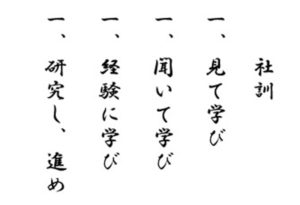 社訓
一、見て学び
一、聞いて学び
一、経験に学び
一、研究し、進め